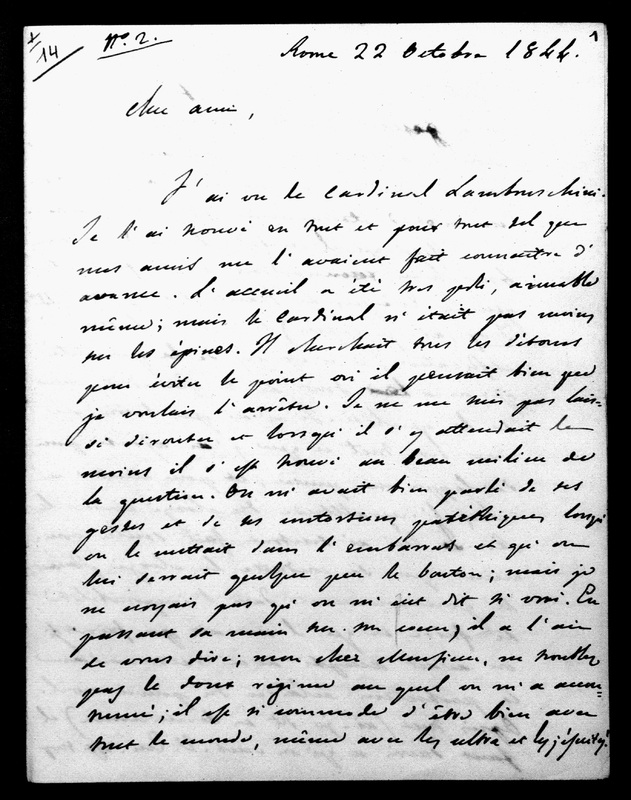 14 N.o 2. 1
Rome 22 Octobre 1844.
Cher ami,
J'ai vu le Cardinal Lambruschini.
Je l'ai trouvé en tout et pour tout tel que
mes amis me l'avaient fait connaître d'
avance. L'accueil a été très poli, aimable
même; mais le Cardinal n'était pas moins
sur les épines. Il cherchait tous les détours
pour éviter le point où il pensait bien que
je voulais l'arrêter. Je ne me suis pas lais-
sé dérouter et lorsqu'il s'y attendait le
moins il s'est trouvé au beau milieu de
la question. On m'avait bien parlé de ses
gestes et de ses contorsions pathétiques lorsqu'
on le mettait dans l'embarras et qu'on
lui serrait quelque peu le bouton; mais je
ne croyais pas qu'on m'eût dit si vrai. En
passant sa main sur son coeur, il a l'air
de vous dire; mon cher Monsieur, ne troublez
pas le doux régime au quel on m'a accou=
tumé; il est si commode d'être bien avec
tout le monde, même avec les ultra et les jésuites.